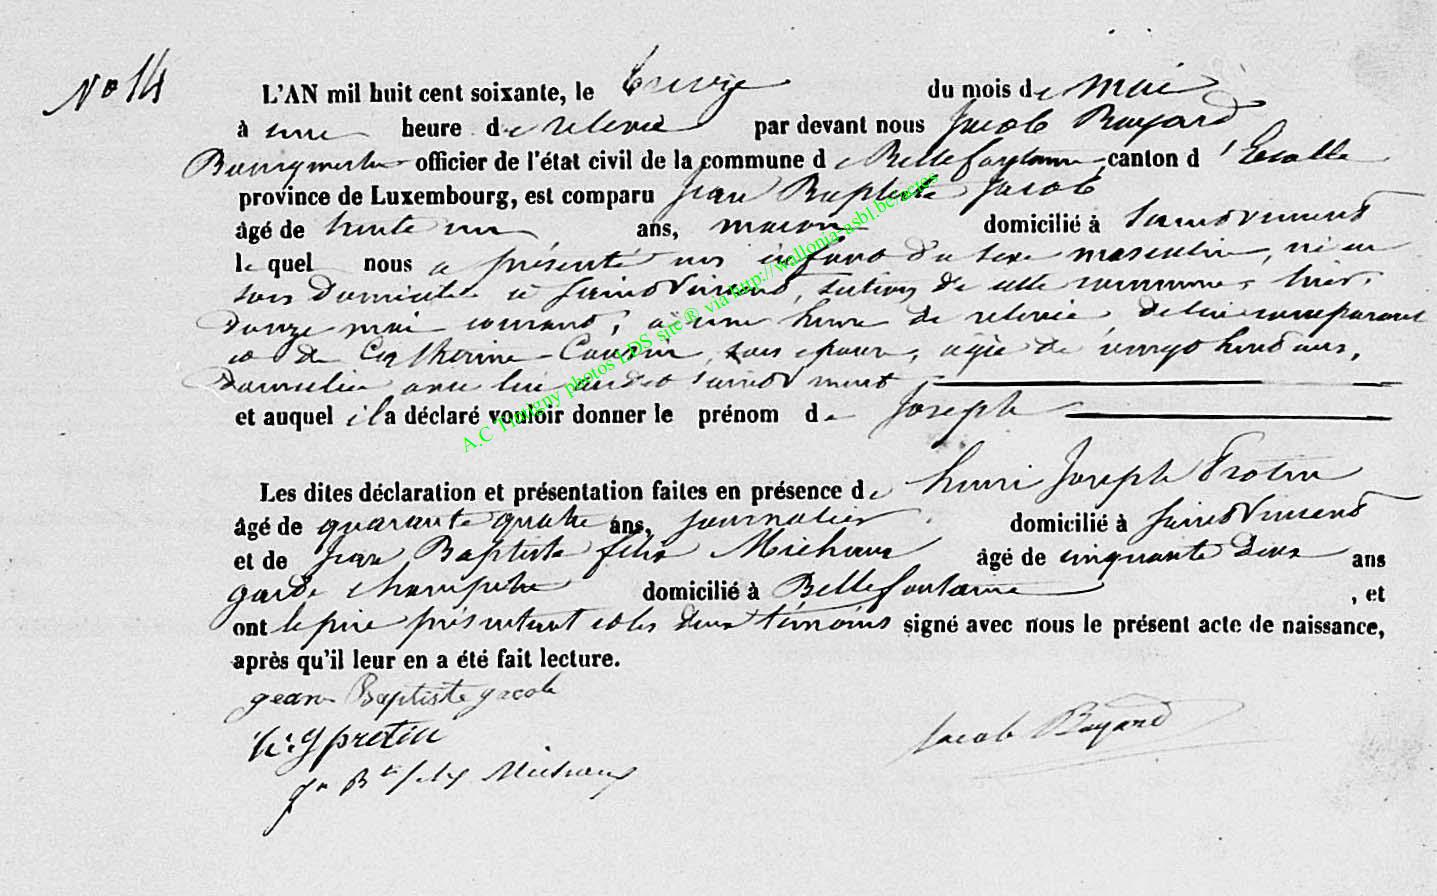 N° 14
L'AN mil huit cent soixante, le treize du mois de Mai
à une heure de relevée par devant nous Jacob Bayard
Bourgmestre officier de l'état civil de la commune de Bellefontaine canton d'Etalle
province de Luxembourg, est comparu Jean Baptiste Jacob
âgé de trente un ans, maçon domicilié à Saint Vincent
lequel nous a présenté un enfant du sexe masculin, né en
son domicile à Saint Vincent, section de cette commune, hier,
douze mai courant, à une heure de relevée, de lui comparant
et de Catherine Cousin, son épouse, agée de vingt huit ans,
domiciliée avec lui audit Saint Vincent
et auquel il a déclaré vouloir donner le prénom de Joseph
Les dites déclaration et présentation faites en présence de henri Joseph Protin
âgé de quarante quatre ans, journalier domicilié à Saint Vincent
et de Jean Baptiste félix Michaux âgé de cinquante deux ans
garde champetre domicilié à Bellefontaine, et
ont le pere présentant et les deux témoins signé avec nous le présent acte de naissance,
après qu'il leur en a été fait lecture.
gean Baptiste gacob
h. g protin
Jacob Bayard
Jn Bte felix Michaux
A.C Tintigny photos LDS site ® via http://wallonia-asbl.be/actes